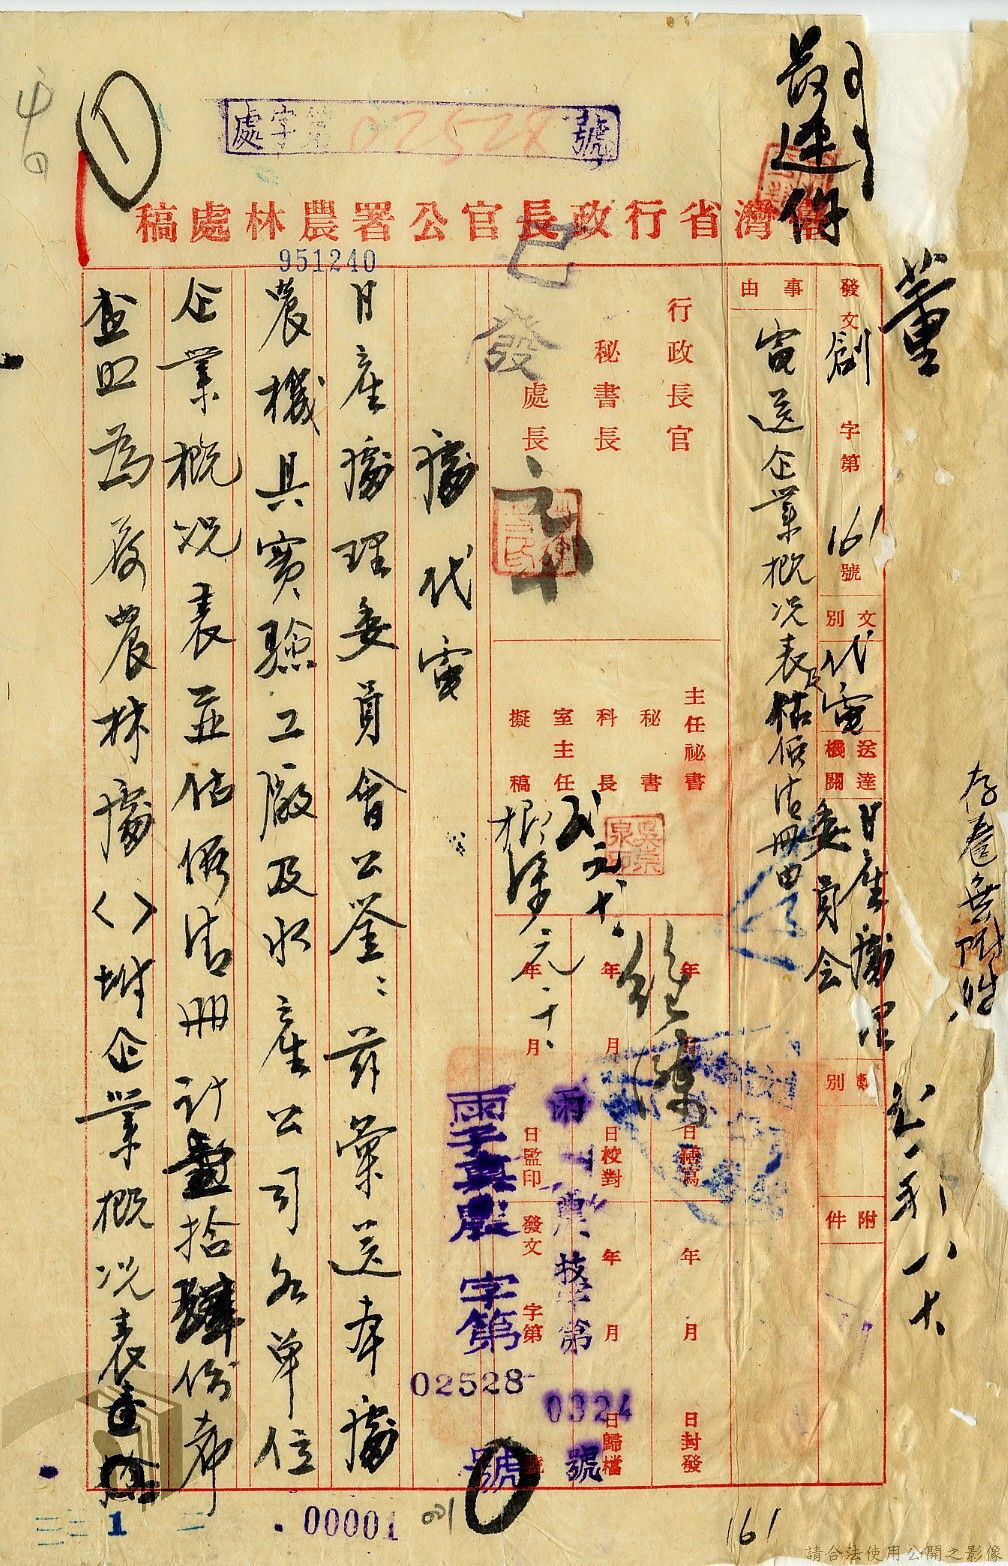 處字第02528號
臺灣省行政長官公署農林處稿
951240
已發
最速件
董
存卷無附件
發文創字第161號
文別
代電
送達機關
日產處理委員會
別
附件
事由
電送企業概況表及估價清冊由
行政長官
秘書長
處長
主任秘書
秘書
科長
室主任
擬稿
年月日繕寫
年月日校對
年月日監印
年月日封發
年月日歸檔
發文字第
號
農技字第0324號
字第02528號
處代電
日產處理委員會公鑒：茲彙送本處
農機具實驗工廠及水產公司各單位
企業概況表並估價清冊計壹拾肆份希
查照為荷農林處〈〉附企業概況表壹拾
1
00001
161
請合法使用公開之影像